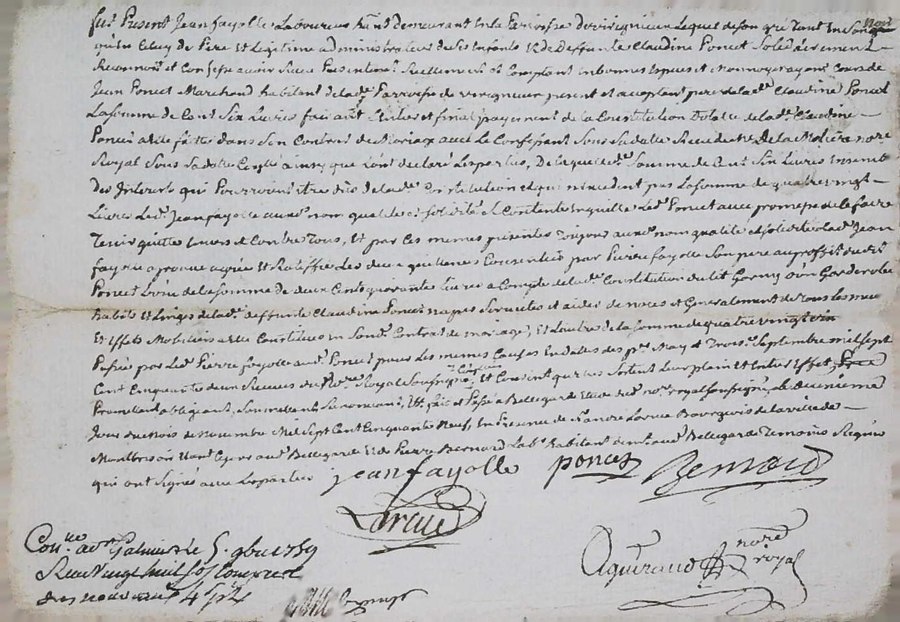 fut Present Jean fayolle Laboureur h̃nt demeurant en la Parroisse de virigneux Lequel de son gré tant en son nom
qu'en celuy de Pere et Legitime administrateur de ses Enfants & de deffunte Claudine Poncet Solidairement
Reconnoit et Confesse avoir Receu Presentement Reellement et Comptant en bonnes Especes et monnoye ayant Cours de
Jean Poncet Marchand habitant de lad. Parroisse de virigneux present et acceptant pere de lad. Claudine Poncet
La somme de Cent Six Livres faisant Entier et final payement de la Constitution Dotalle de lad. Claudine
Poncet a elle faitte dans son Contrat de Mariage avec le Confessant Sous sa datte Receu de Me De la Moliere nore
Royal Sous sa datte ainsy que l'ont declaré Les parties, De laquelle somme de Cent Six Livres Ensemble
Des Interets qui Pourroient etre dus de lad. Constitution et qui n'excedent pas La somme de quatre vingt
Livres Led. Jean fayolle auxd. nom qualité et solidité se Contente En quitte Led. Poncet avec promesse de le faire
Tenir quitte Envers et Contre Tous, Et par ces memes présentes Toujours auxd. nom qualité et solidité led. Jean
fayolle aprouve agrée Et Ratiffie Les deux quittances Consenties par Pierre fayolle son pere au proffit dud.
Poncet L'une de la somme de deux Cent quarante Livres a Compte de lad. Constitution du lit Garny Garderobe
habits Et Linges de lad. deffunte Claudine Poncet napes Serviettes et aides de noces et Generalement de Tous les meubles
Et Effets Mobiliers a elle Constitués en Sond. Contrat de mariage, Et L'autre de la somme de quatre vingt
Passées par Led. Pierre fayolle aud. Poncet pour Les memes Causes En dattes des pr. May et Trois. Septembre mil sept
Cent Cinquante deux Receues du No.re Royal Soussigné, Et Consent qu'elles Sortent Leur plain Et Entier Effet,
Promettant obligeant, Soumettant Renonçant, &c. fait et Passé a Bellegarde Etude du no.re royal soussigné, le deuxième
Jour du mois de novembre Mil Sept Cent Cinquante Neuf, En Presence de Sr André Larue Bourgeois de la ville de
Montbrison aud. Bellegarde Et de Pierre Bernard Lab. habitant aud. Bellegarde Temoins Requis
qui ont Signé avec Les parties
jean fayolle
poncet
Bernard
Larue
Con.lle a St Galmier le 5. 9bre 1759
Receu vingt huit sols Compris
les nouveaux 4 s. p. L.
nore
royal